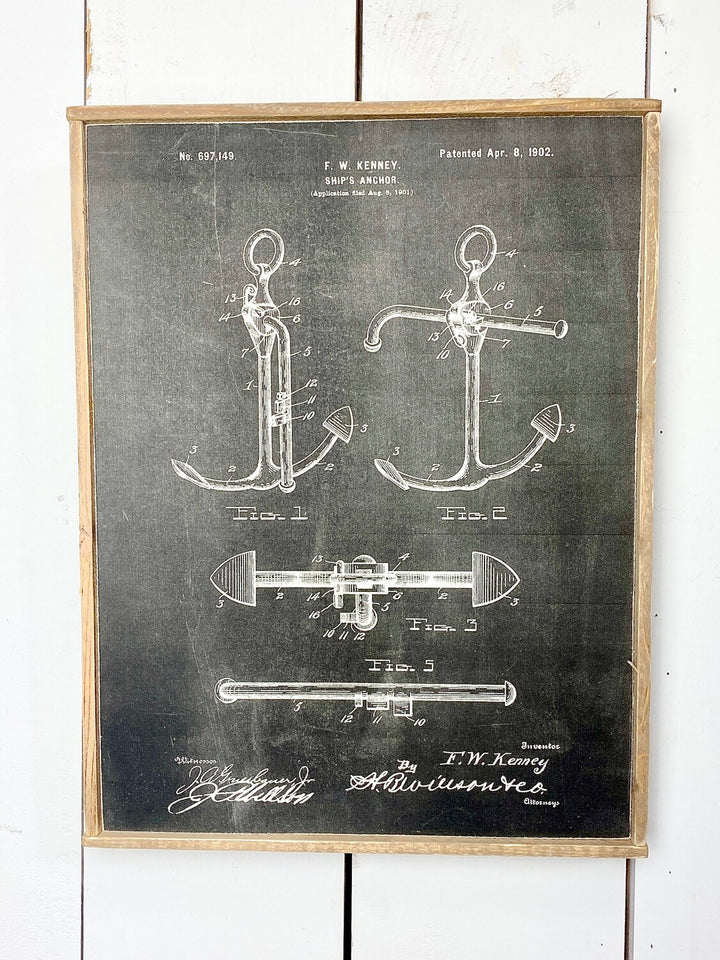 No. 697,149.
Patented Apr. 8, 1902.
F. W. KENNEY.
SHIP'S ANCHOR.
(Application filed Aug. 5, 1901.)
4
13
16
14
6
7
5
1
12
11
10
3
3
2
2
Fig. 1
4
14
16
6
5
13
10
7
1
3
3
2
2
Fig. 2
13
4
2
14
6
2
3
16
5
3
10 11 12
Fig. 3
Fig. 5
5
12
11
10
Witnesses
Inventor
F. W. Kenney
By
Attorneys